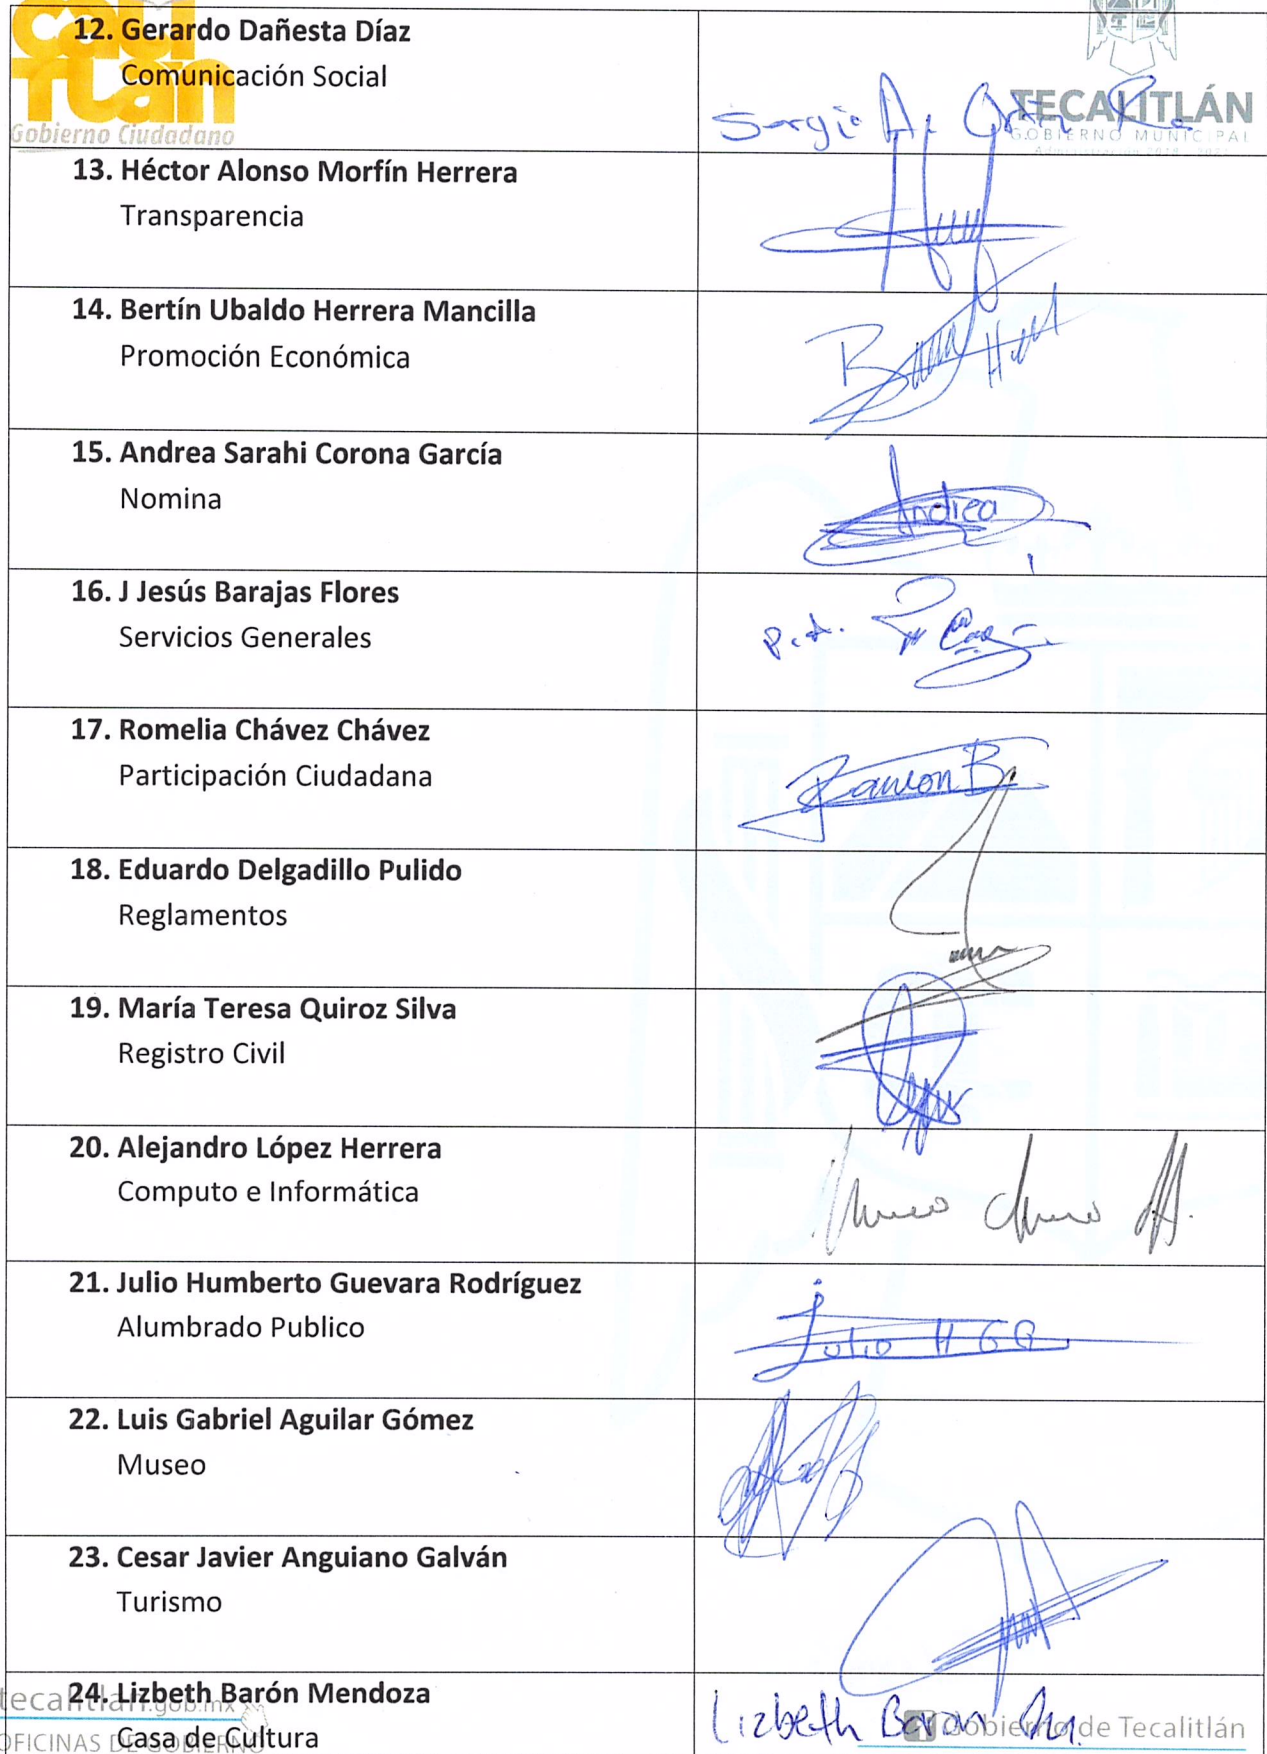 12. Gerardo Dañesta Díaz
Comunicación Social
Gobierno Ciudadano
TECALITLÁN
GOBIERNO MUNICIPAL
Administración 2018 - 2021
Sergio
13. Héctor Alonso Morfín Herrera
Transparencia
14. Bertín Ubaldo Herrera Mancilla
Promoción Económica
15. Andrea Sarahi Corona García
Nomina
Andrea
16. J Jesús Barajas Flores
Servicios Generales
17. Romelia Chávez Chávez
Participación Ciudadana
Ramon B.
18. Eduardo Delgadillo Pulido
Reglamentos
19. María Teresa Quiroz Silva
Registro Civil
20. Alejandro López Herrera
Computo e Informática
21. Julio Humberto Guevara Rodríguez
Alumbrado Publico
Julio H G R
22. Luis Gabriel Aguilar Gómez
Museo
23. Cesar Javier Anguiano Galván
Turismo
24. Lizbeth Barón Mendoza
Casa de Cultura
Lizbeth Baron M.
tecalitlan.gob.mx
OFICINAS DE GOBIERNO
Gobierno de Tecalitlán